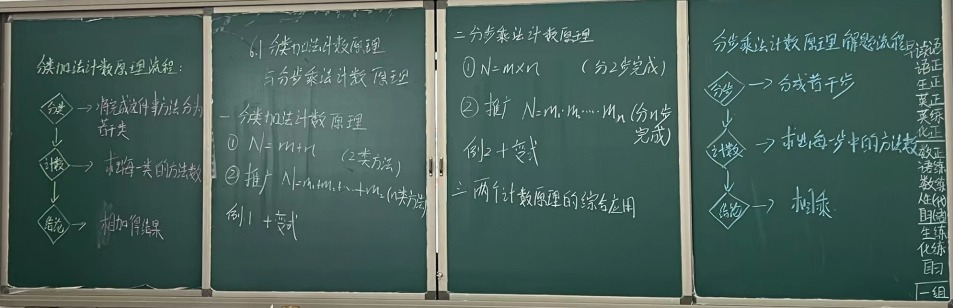 分类加法计数原理流程:
分类 → 将完成这件事方法分为
若干类
计数 → 求出每一类的方法数
结论 → 相加得结果
6.1 分类加法计数原理
与分步乘法计数原理
一 分类加法计数原理
① N=m+n (2类方法)
② 推广 N=m₁+m₂+…+m₂(n类方法)
例1 + 变式
二 分步乘法计数原理
① N=m×n (分2步完成)
② 推广 N=m₁·m₂·…·mₙ (分n步
完成)
例2 + 变式
三 两个计数原理的综合应用
分步乘法计数原理解题流程
分步 → 分成若干步
计数 → 求出每一步中的方法数
结论 → 相乘
语正
生正
英正
英练
化正
数正
语练
数练
生练
化练
自习
一组